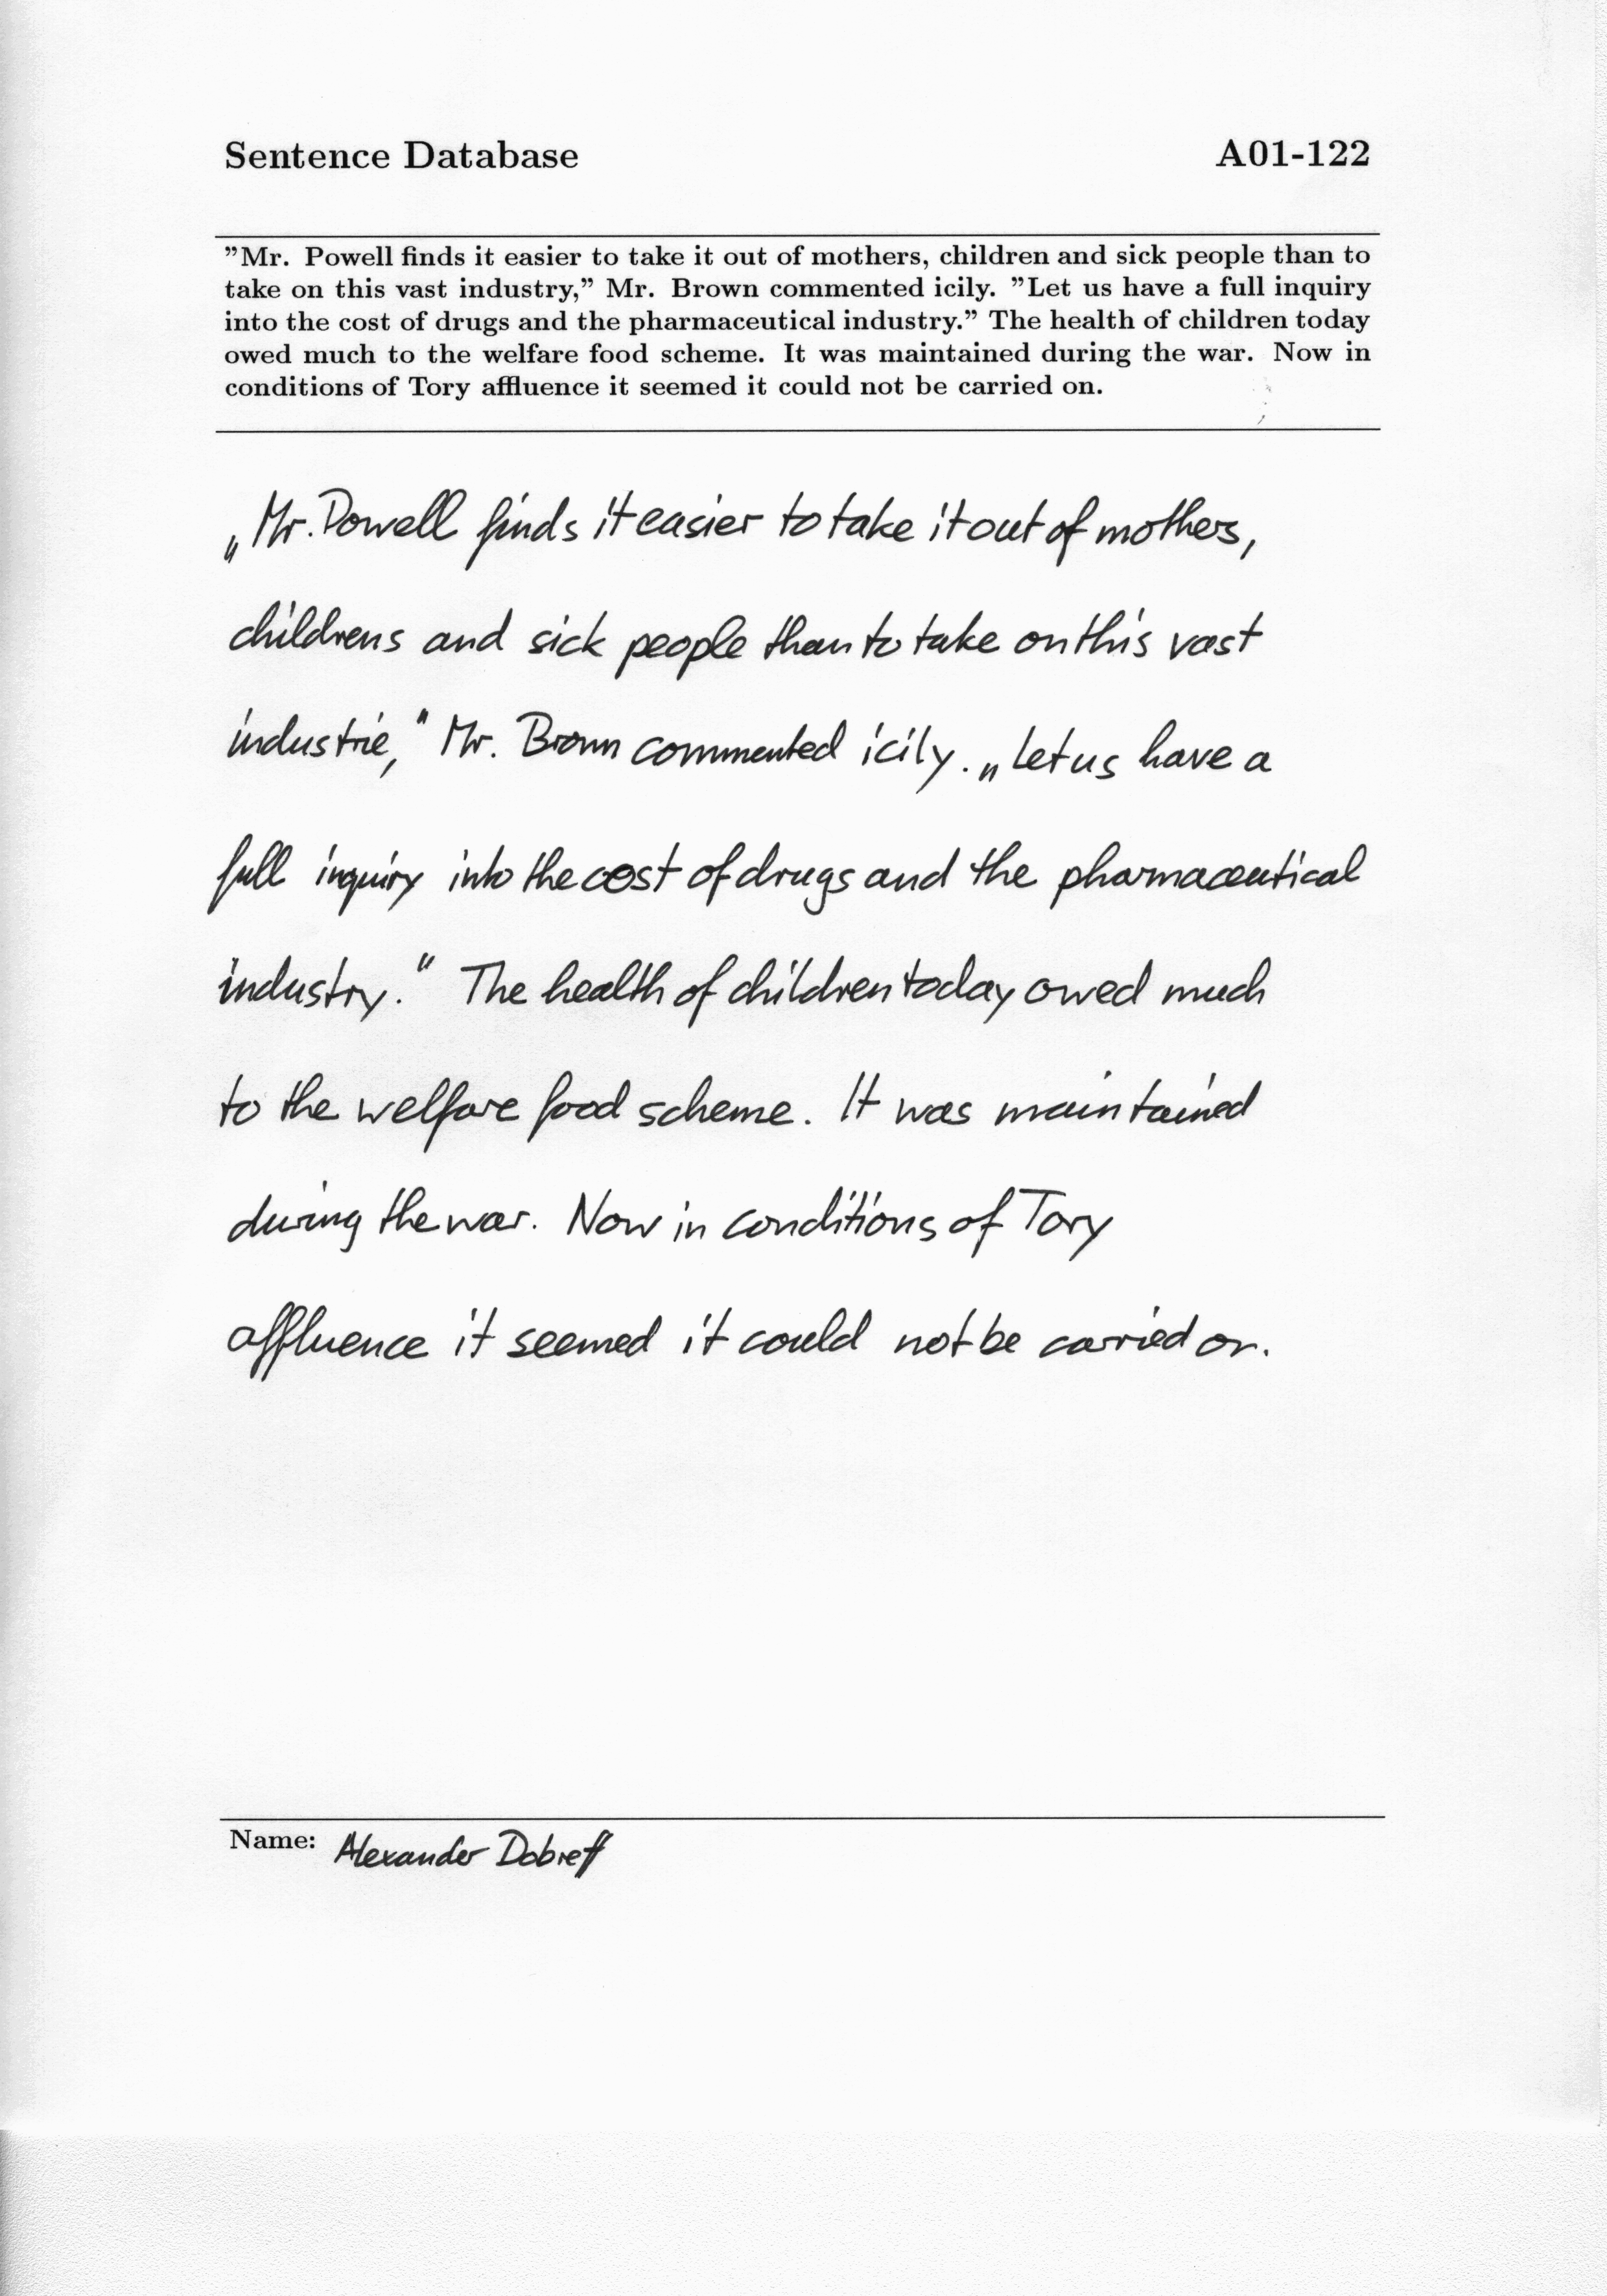 Sentence Database A01-122
”Mr. Powell finds it easier to take it out of mothers, children and sick people than to
take on this vast industry,” Mr. Brown commented icily. ”Let us have a full inquiry
into the cost of drugs and the pharmaceutical industry.” The health of children today
owed much to the welfare food scheme. It was maintained during the war. Now in
conditions of Tory affluence it seemed it could not be carried on.
„Mr. Powell finds it easier to take it out of mothers,
childrens and sick people than to take on this vast
industrie,“ Mr. Brown commented icily. „Let us have a
full inquiry into the cost of drugs and the pharmaceutical
industry.“ The health of children today owed much
to the welfare food scheme. It was maintained
during the war. Now in conditions of Tory
affluence it seemed it could not be carried on.
Name: Alexander Dobreff